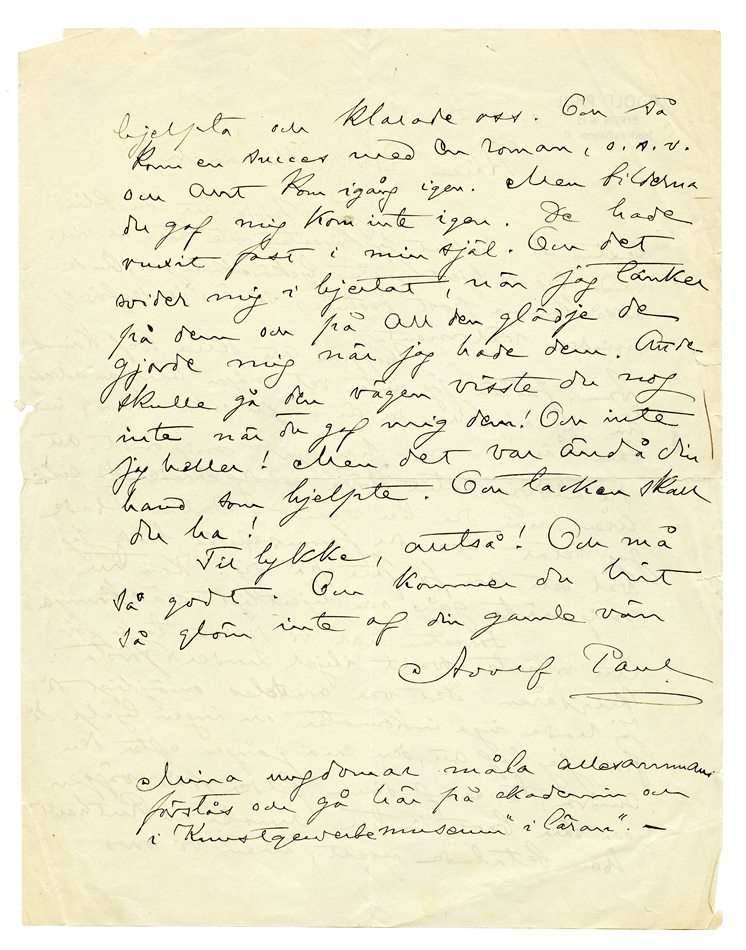 hjelpta och klarade oss. Och så
kom en succes med en roman, o. s. v.
och allt kom igång igen. Men bilderna
du gaf mig kom inte igen. De hade
vuxit fast i min själ. Och det
svider mig i hjertat, när jag tänker
på dem och på all den glädje de
gjorde mig när jag hade dem. Att de
skulle gå den vägen visste du nog
inte när du gaf mig dem! Och inte
jag heller! Men det var ändå din
hand som hjelpte. Och tacken skall
du ha!
Til lykke, alltså! Och må
så godt. Och kommer du hit
så glöm inte af din gamle vän
Adolf Paul
Mina ungdomar måla allesammans
förstås och gå här på akademin och
i "Kunstgewerbemuseum" i läran". —